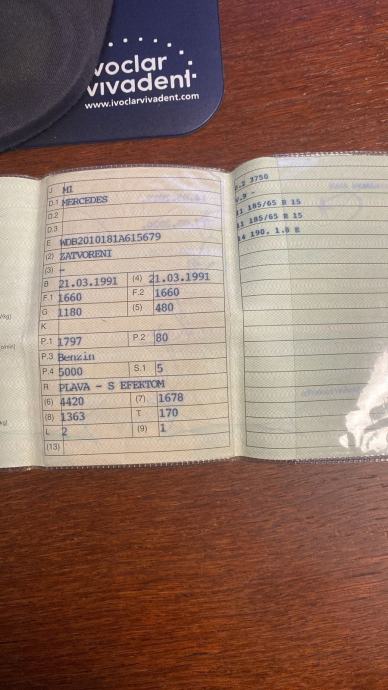 ivoclar
vivadent
www.ivoclarvivadent.com
J M1
D.1 MERCEDES
D.2
D.3
E WDB2010181A615679
(2) ZATVORENI
(3) -
B 21.03.1991 (4) 21.03.1991
F.1 1660 F.2 1660
G 1180 (5) 480
K
P.1 1797 P.2 80
P.3 Benzin
P.4 5000 S.1 5
R PLAVA - S EFEKTOM
(6) 4420 (7) 1678
(8) 1363 T 170
L 2 (9) 1
(13)
3750
185/65 R 15
185/65 R 15
14 190, 1.8 E